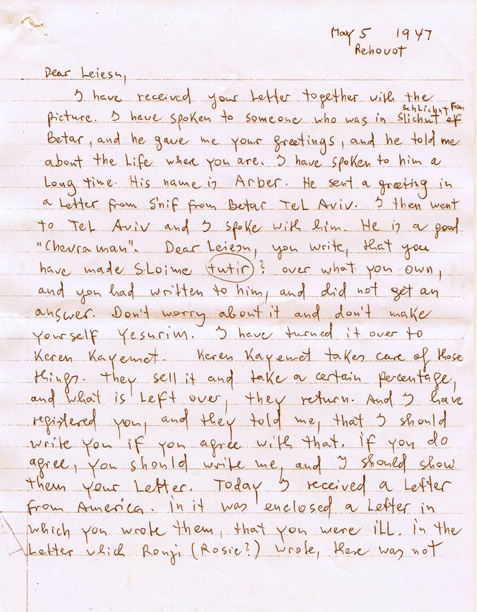 May 5 1947
Rehovot
Dear Leiesn,
I have received your Letter together with the
picture. I have spoken to someone who was in slichut of
schlichut from
Betar, and he gave me your greetings, and he told me
about the Life where you are. I have spoken to him a
Long time. His name is Arber. He sent a greeting in
a Letter from Snif from Betar Tel Aviv. I then went
to Tel Aviv and I spoke with him. He is a good
"Chevraman". Dear Leiesn, you write, that you
have made Sloime tutir? over what you own,
and you had written to him, and did not get an
answer. Don't worry about it and don't make
yourself Yesurim. I have turned it over to
Keren Kayemet. Keren Kayemet takes care of those
things. They sell it and take a certain percentage,
and what is Left over, they return. And I have
registered you, and they told me, that I should
write you if you agree with that. if you do
agree, you should write me, and I should show
them your Letter. Today I received a Letter
from America. in it was enclosed a Letter in
which you wrote them, that you were iLL. in the
Letter which Ronzi (Rosie?) wrote, there was not